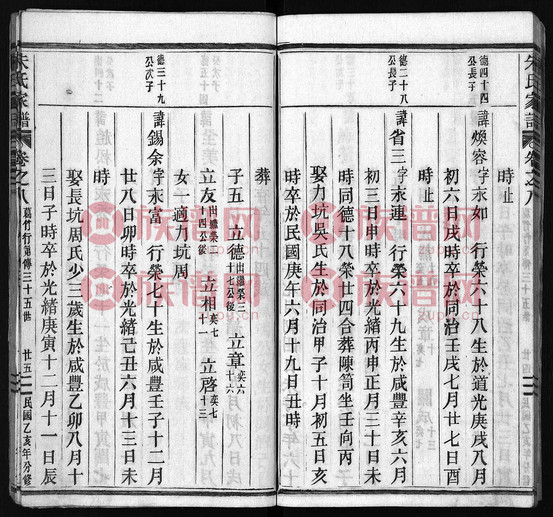 朱氏家譜
卷之八
德四十四
公長子
諱煥容字永如 行榮六十八生於道光庚戌八月
初六日戌時卒於同治壬戌七月廿七日酉
時止
德二十八
公長子
諱省三字永連 行榮六十九生於咸豐辛亥六月
初三日申時卒於光緒丙申正月三十日未
時同德十八榮廿四合葬陳筒坐壬向丙
娶力坑吳氏生於同治甲子十月初五日亥
時卒於民國庚午六月十九日丑時
葬
子五 立德出繼榮三十七公後 立章奕六十六
立友出繼榮二十四公後 立相奕七十一 立啓奕七十三
女一適力坑周
德三十九
公次子
諱錫余字永富 行榮七十生於咸豐壬子十二月
廿八日卯時卒於光緒己丑六月十三日未
時
娶長坑周氏少三歲生於咸豐乙卯八月十
三日子時卒於光緒庚寅十二月十一日辰
朱氏家譜
卷之八
葛竹行第傳三十五世
廿五
民國乙亥年分修
族譜网
族譜网